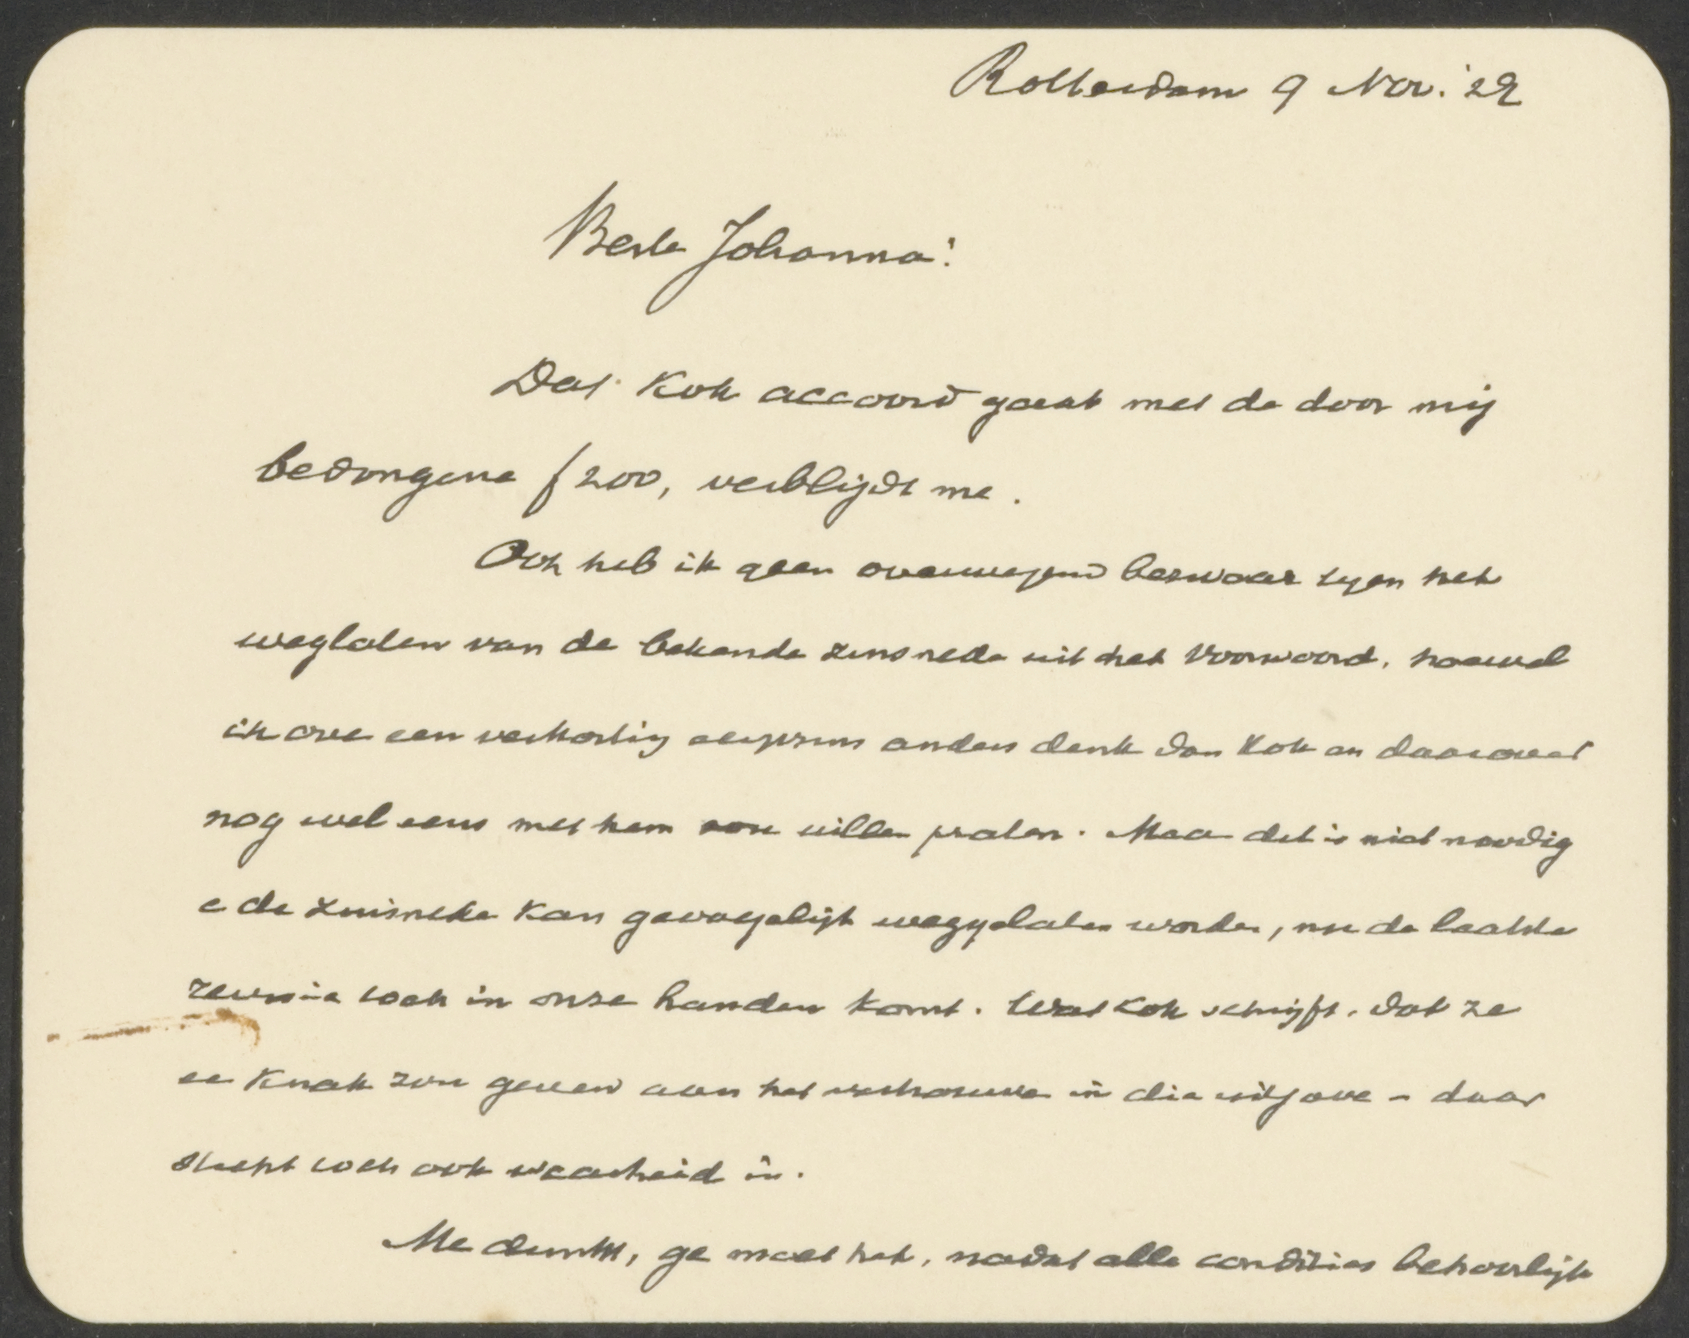 Rotterdam 9 Nov. '22
Beste Johanna!
Dat Kok accoord gaat met de door mij
bedongene f 200, verblijdt me.
Ook heb ik geen overwegend bezwaar tegen het
weglaten van de bekende zinsnede uit het Voorwoord, hoewel
ik over een verkorting anders denk dan Kok en daarover
nog wel eens met hem zou willen praten. Maar dit is niet noodig
e de zinsnede kan gevoegelijk weggelaten worden, nu de laatste
revisie toch in onze handen komt. Wat Kok schrijft, dat ze
ee knak zou geven aan het vertrouwen in die uitgave - daar
steekt toch ook waarheid in.
Me dunkt, ge moet het, nadat alle condities behoorlijk